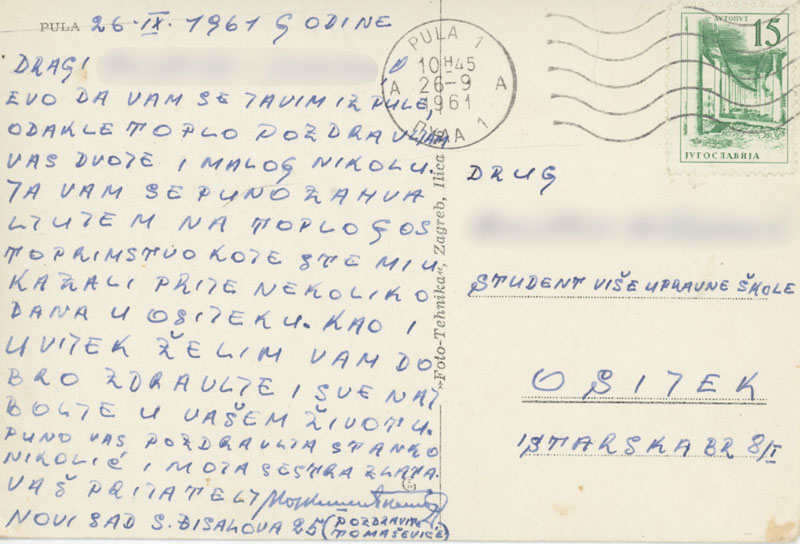 PULA 26-IX-1961 GODINE
DRAGI
EVO DA VAM SE JAVIM IZ PULE,
ODAKLE TOPLO POZDRAVLJAM
VAS DVOJE I MALOG NIKOLU.
JA VAM SE PUNO ZAHVA
LJUJEM NA TOPLO GOS
TOPRIMSTVO KOJE STE MI U
KAZALI PRIJE NEKOLIKO
DANA U OSIJEKU. KAO I
UVIJEK ŽELIM VAM DO
BRO ZDRAVLJE I SVE NAJ
BOLJE U VAŠEM ŽIVOTU.
PUNO VAS POZDRAVLJA STANKO
NIKOLIĆ I MOJA SESTRA ZLATA.
VAŠ PRIJATELJ
NOVI SAD S. 25 (POZDRAVITE
TOMAŠEVIĆE)
»Foto-Tehnika«, Zagreb, Ilica
PULA 1
10H45
A 26-9 A
1961
ПУЛА 1
АУТОПУТ
15
ЈУГОСЛАВИЈА
DRUG
STUDENT VIŠE UPRAVNE ŠKOLE
OSIJEK
ISTARSKA BR 8/I